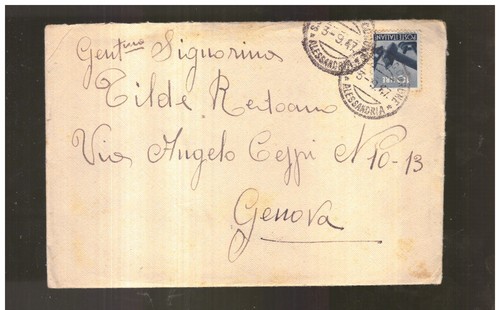 Gent.ma Signorina
Tilde Redoano
Via Angelo Ceppi N 10-13
Genova
3-9.47.
* ALESSANDRIA *
3-9.47.
* ALESSANDRIA *
POSTE ITALIANE